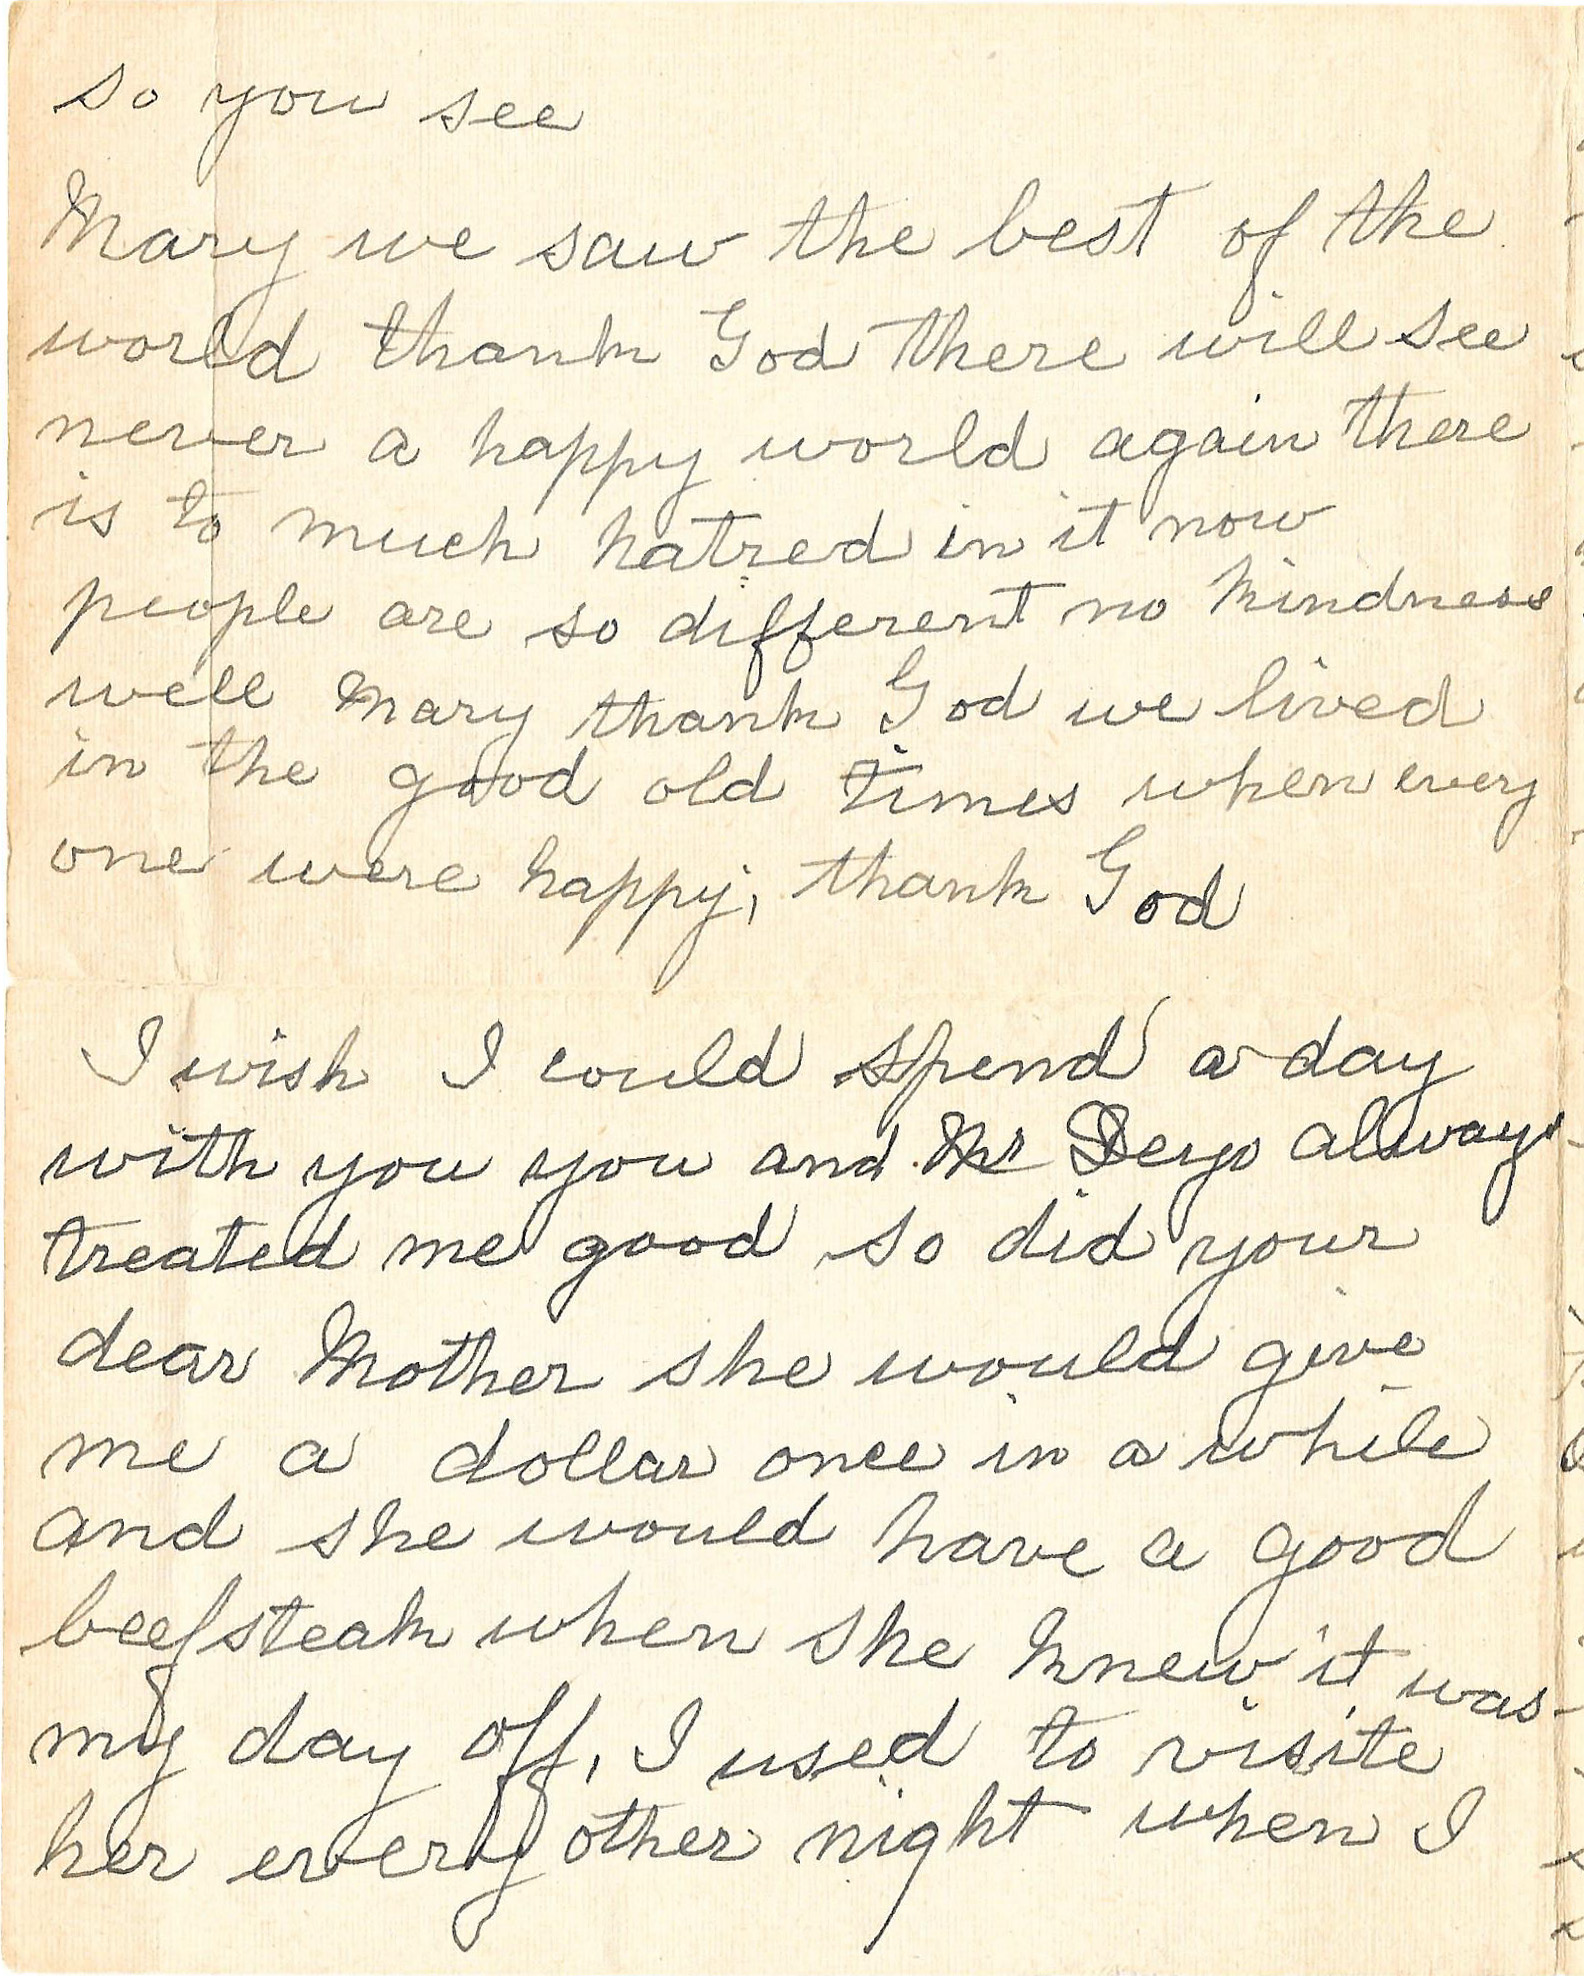 so you see
Mary we saw the best of the
world thank God there will see
never a happy world again there
is to much hatred in it now
people are so different no kindness
well Mary thank God we lived
in the good old times when every
one were happy, thank God
I wish I could spend a day
with you you and Mr Deyo always
treated me good so did your
dear Mother she would give
me a dollar once in a while
and she would have a good
beefsteak when she knew it was
my day off, I used to visite
her every other night when I